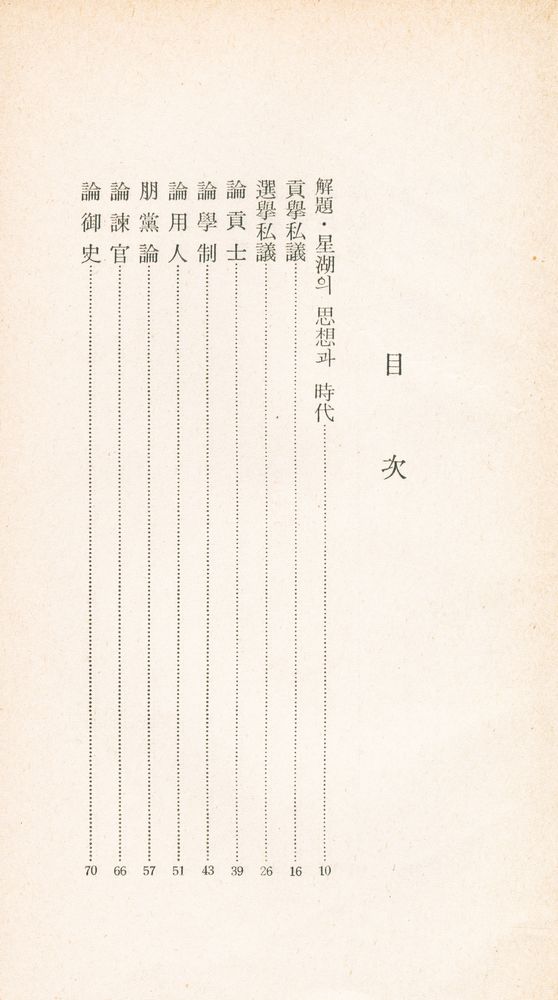 目次
解題·星湖의 思想과 時代 10
貢擧私議 16
選擧私議 26
論貢士 39
論學制 43
論用人 51
朋黨論 57
論諫官 66
論御史 70